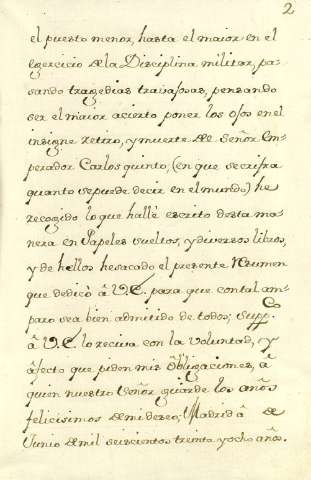 2
el puesto menor, hasta el maior en el
egercicio de la Disciplina militar, pa-
sando tragedias travajosas, pensando
ser el maior acierto poner los ojos en el
insigne retiro, y muerte del Señor Em-
perador Carlos quinto, (en que se cifra
quanto se puede decir en el mundo) he
recogido lo que hallè escrito desta ma-
nera en Papeles sueltos, y diversos libros,
y de hellos he sacado el presente Resumen
que dedicò â V.E. para que con tal am-
paro sea bien admitido de todos; Supp.co
â V.E. lo reciva con la voluntad, y
afecto que piden mis obligaciones, â
quien nuestro Señor guarde los años
felicisimos de mi deseo; Madrid â de
Junio de mil seiscientos treinta y ocho años.